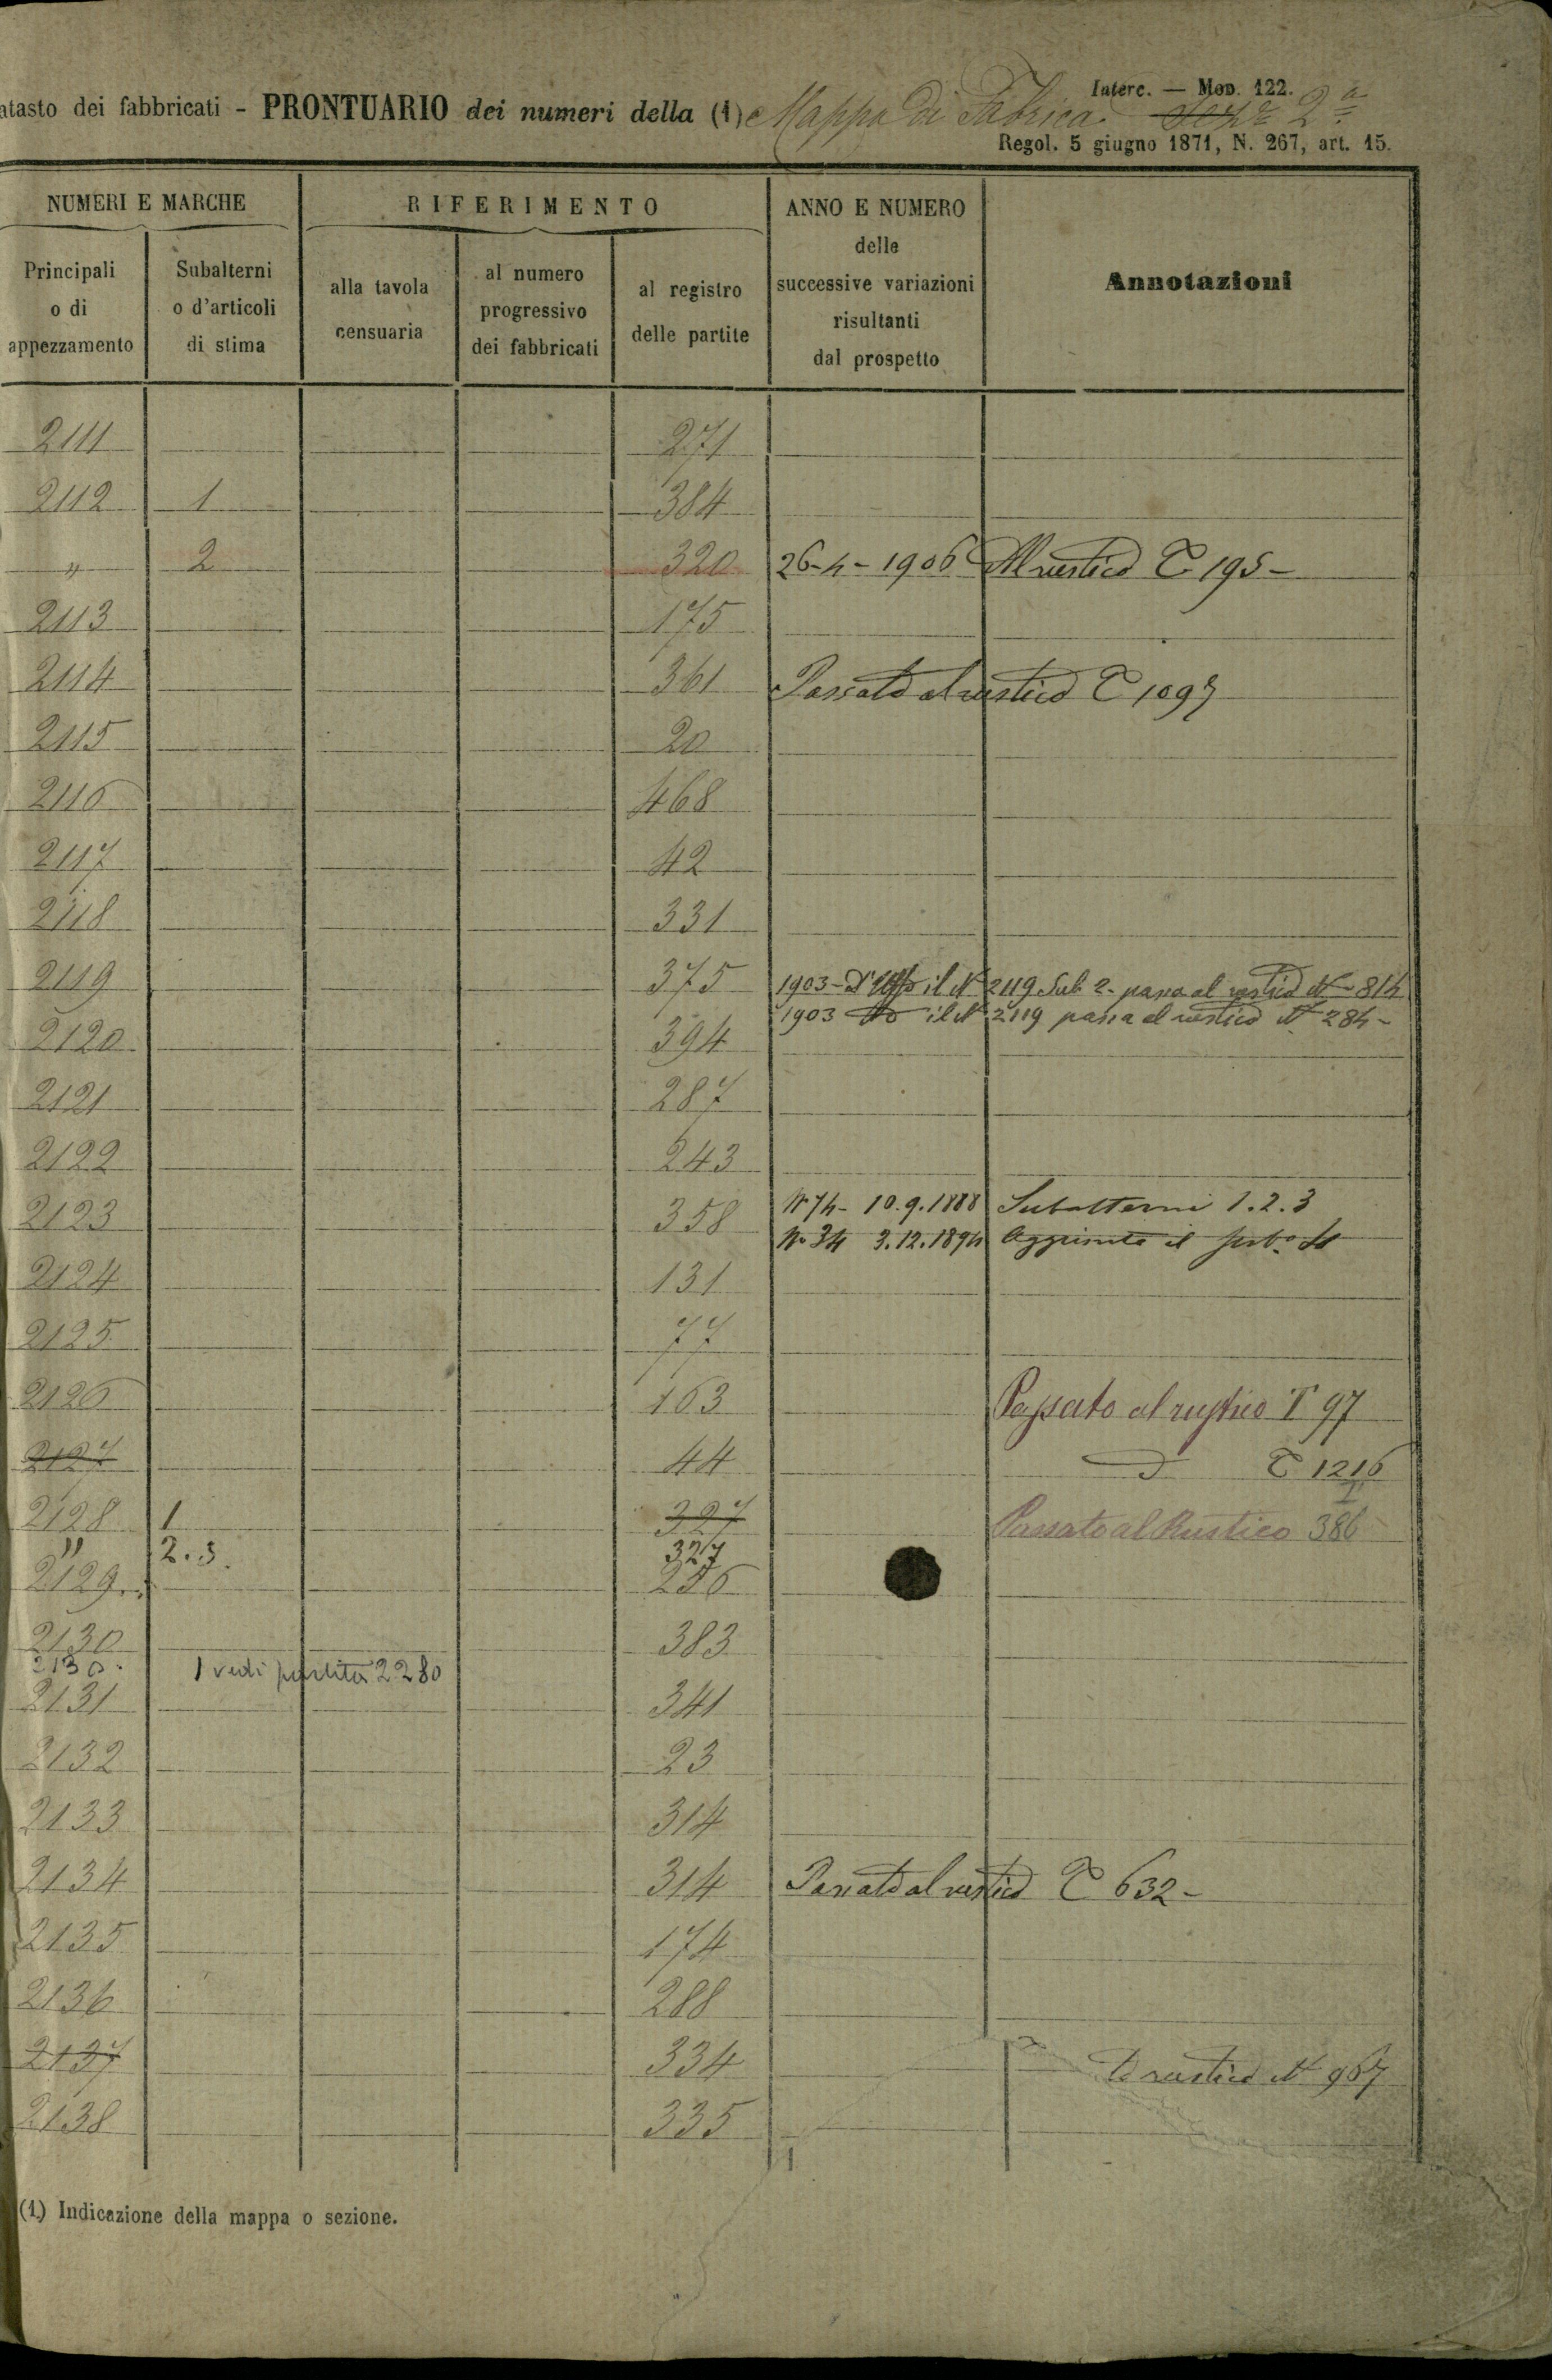 Interc. — Mod. 122.
atasto dei fabbricati - PRONTUARIO dei numeri della (1) Mappa di Fabrica. 2.a
Regol. 5 giugno 1871, N. 267, art. 15.
NUMERI E MARCHE RIFERIMENTO ANNO E NUMERO delle successive variazioni risultanti dal prospetto Annotazioni
Principali o di appezzamento Subalterni o d'articoli di stima alla tavola censuaria al numero progressivo dei fabbricati al registro delle partite
2111 271
2112 1 384
" 2 320 26-4-1906 Al rustico T 195-
2113 175
2114 361 Passato al rustico T 1097
2115 20
2116 468
2117 42
2118 331
2119 375 1903- il N 2119 Sub 2- passa al rustico N 814
1903 il N 2119 passa al rustico N 284-
2120 394
2121 287
2122 243
2123 358 N 74- 10.9.1888 Subalterni 1.2.3
No 34 3.12.1894 Aggiunto il sub.o 4
2124 131
2125 77
2126 163 Passato al rustico T 97
2127 44 D T 1216
2128 1 327 Passato al Rustico T 386
" 2.3. 327
2129 256
2130 383
2130. 1 vedi partita 2280
2131 341
2132 23
2133 314
2134 314 Passato al rustico T 632-
2135 174
2136 288
2137 334 rustico N 967
2138 335
(1) Indicazione della mappa o sezione.